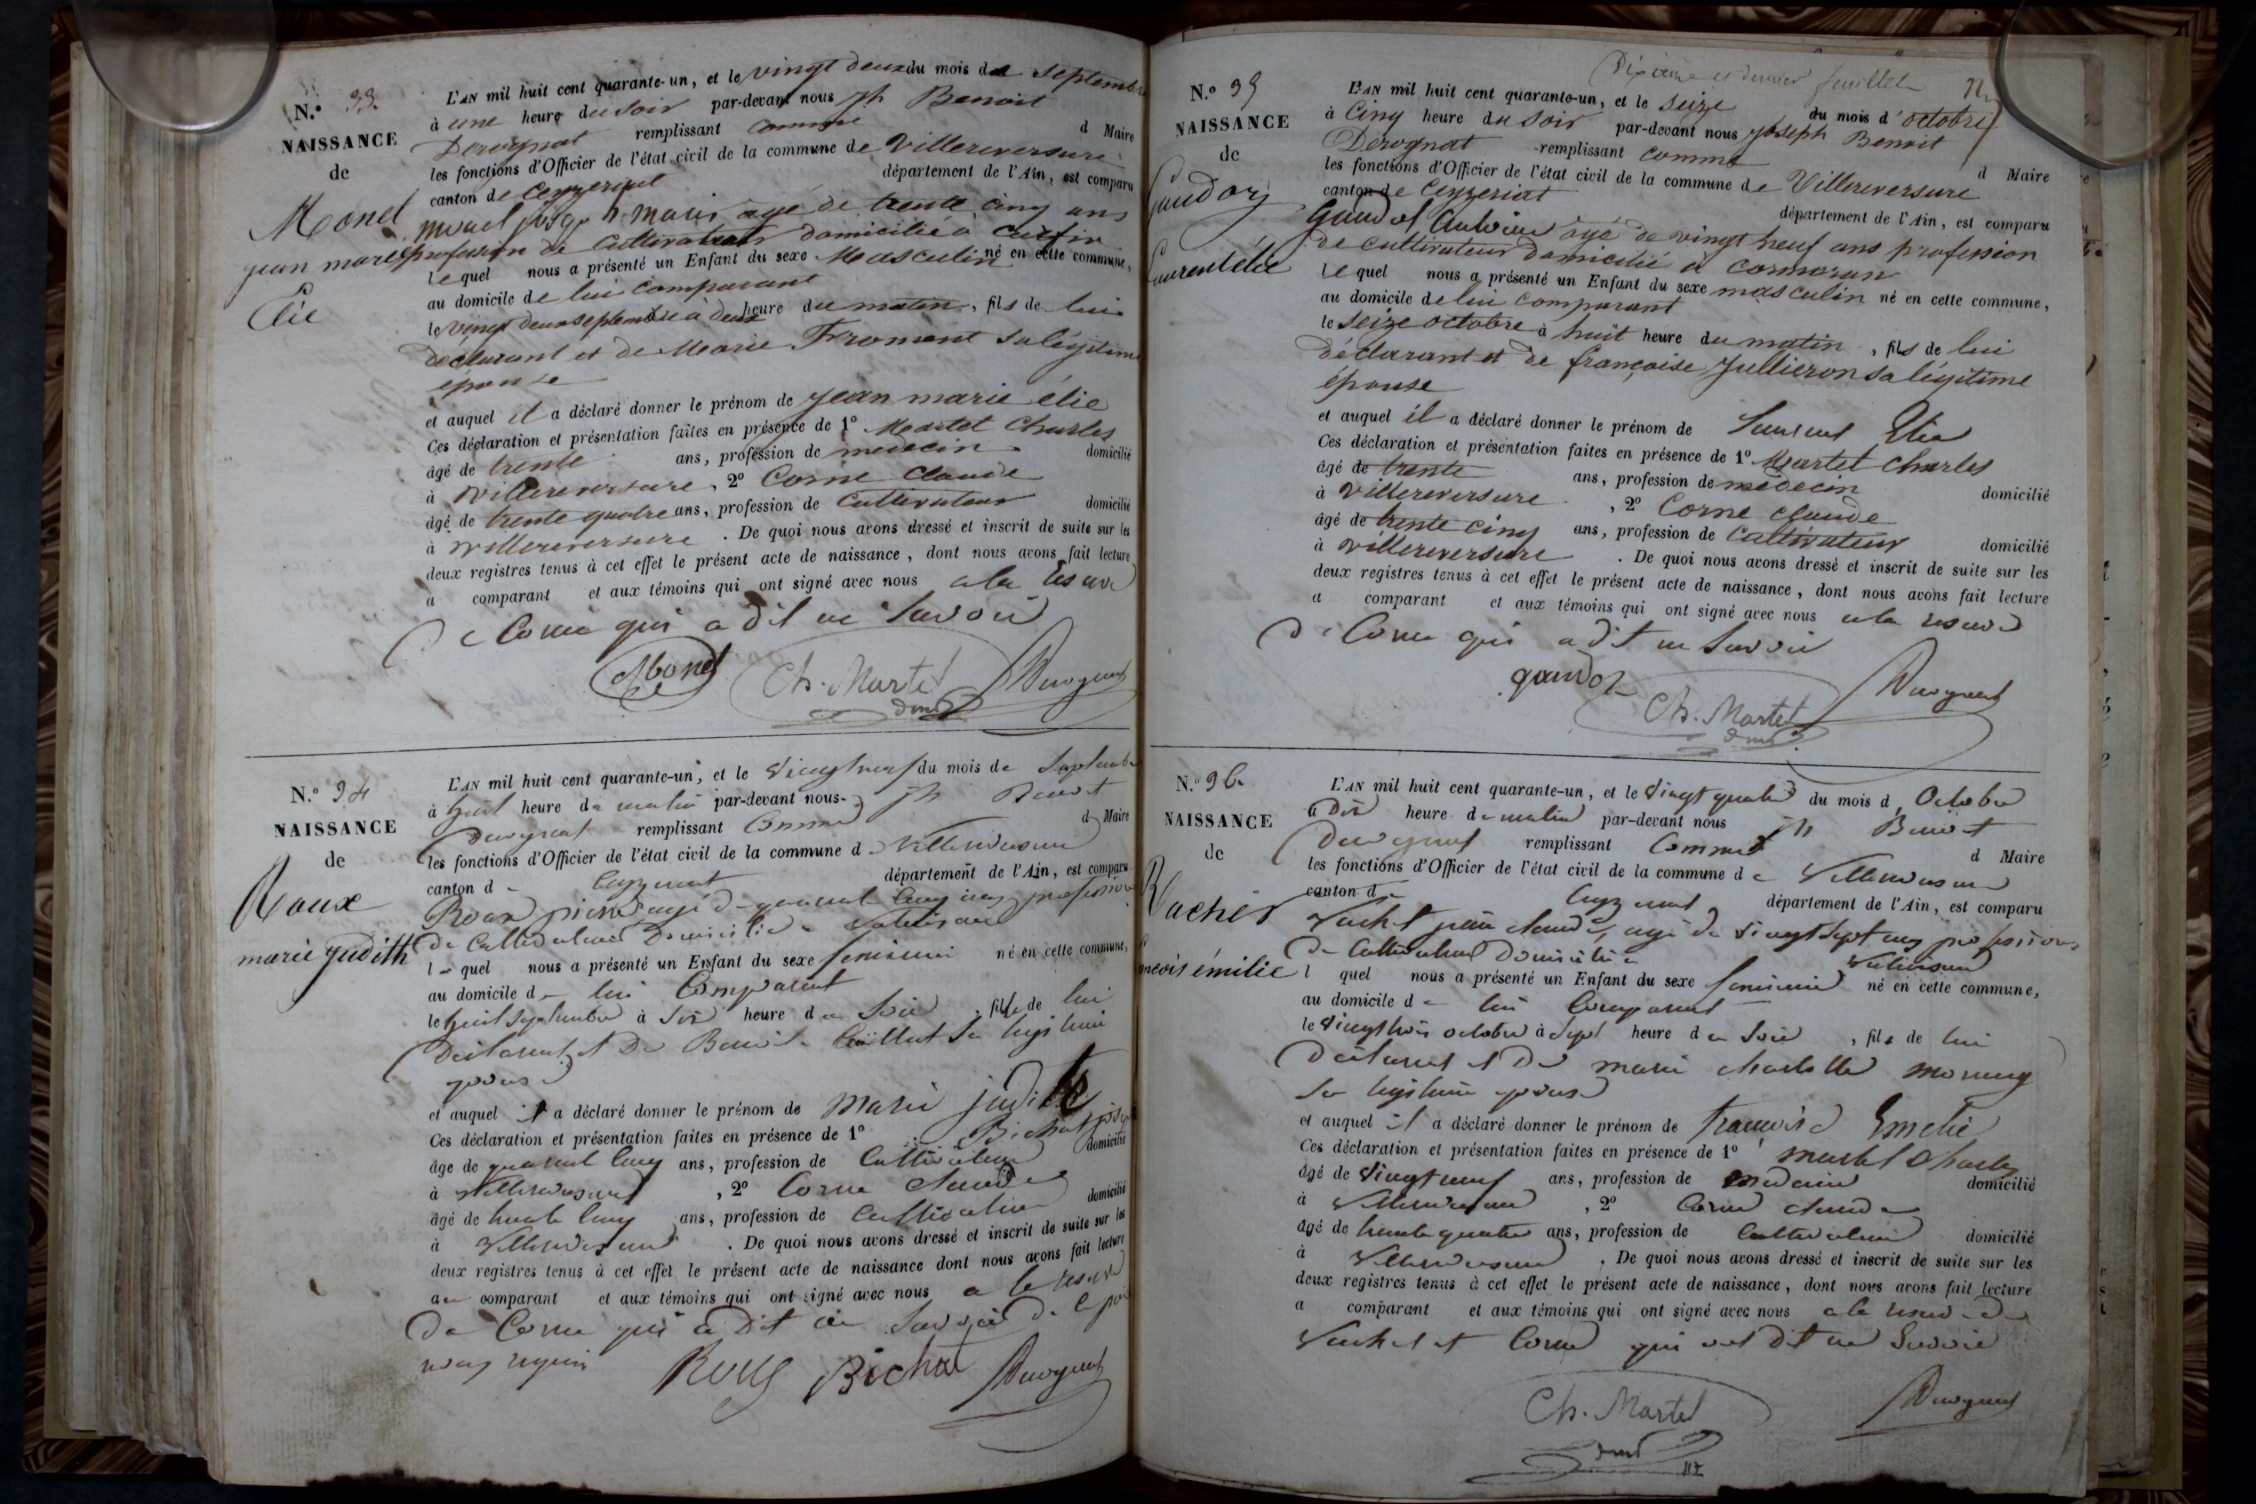 N.º 33.
NAISSANCE
de
Monel
jean marie
Elie
L'AN mil huit cent quarante-un, et le vingt deux du mois de septembre
à une heure du soir par-devant nous Jh Benoit
Derognat remplissant comme d Maire
les fonctions d'Officier de l'état civil de la commune de Villereversure
canton de Ceyzeriat département de l'Ain, est comparu
monel âgé de trente cinq ans
profession de Cultivateur domicilié à
lequel nous a présenté un Enfant du sexe Masculin né en cette commune,
au domicile de lui comparant
le vingt deux septembre à deux heure du matin, fils de lui
déclarant et de Marie Froment sa légitime
épouse
et auquel il a déclaré donner le prénom de jean marie élie
Ces déclaration et présentation faites en présence de 1º Martel Charles
âgé de trente ans, profession de medecin domicilié
à villereversure, 2º Corne Claude
âgé de trente quatre ans, profession de Cultivateur domicilié
à villereversure. De quoi nous avons dressé et inscrit de suite sur les
deux registres tenus à cet effet le présent acte de naissance, dont nous avons fait lecture
a comparant et aux témoins qui ont signé avec nous a la reserve
De Corne qui a dit ne Savoir
Monel Ch. Martel Derognat
N.º 34
NAISSANCE
de
Roux
marie judith
L'AN mil huit cent quarante-un, et le vingt neuf du mois de Septembre
à huit heure du matin par-devant nous Jh Benoit
Derognat remplissant Comme d Maire
les fonctions d'Officier de l'état civil de la commune de Villereversure
canton de Ceyzeriat département de l'Ain, est comparu
Roux pierre agé de quarante Cinq ans profession
de Cultivateur Domicilié a
lequel nous a présenté un Enfant du sexe feminin né en cette commune,
au domicile de lui Comparant
le huit Septembre à heure du Soir, fille de lui
Declarant et De Sa legitime
epouse
et auquel il a déclaré donner le prénom de Marie judith
Ces déclaration et présentation faites en présence de 1º Bichat
âge de quarante Cinq ans, profession de Cultivateur domicilié
à Villereversure, 2º Corne Claude
âgé de trente Cinq ans, profession de Cultivateur domicilié
à Villereversure. De quoi nous avons dressé et inscrit de suite sur les
deux registres tenus à cet effet le présent acte de naissance dont nous avons fait lecture
au comparant et aux témoins qui ont signé avec nous a la reserve
De Corne qui a Dit ne Savoir de ce par
nous requis
Roux Bichat Derognat
Dixieme et dernier feuillet
N.º 35
NAISSANCE
de
Gaudoz
Laurent élie
L'AN mil huit cent quarante-un, et le seize du mois d'octobre
à Cinq heure du soir par-devant nous Joseph Benoit
Derognat remplissant comme d Maire
les fonctions d'Officier de l'état civil de la commune de Villereversure
canton de Ceyzeriat département de l'Ain, est comparu
Gaudoz Antoine âgé de vingt neuf ans profession
de cultivateur domicilié à Cormoran
lequel nous a présenté un Enfant du sexe masculin né en cette commune,
au domicile de lui comparant
le seize octobre à huit heure du matin, fils de lui
déclarant et de françoise Jullieron sa légitime
épouse
et auquel il a déclaré donner le prénom de Laurent Elie
Ces déclaration et présentation faites en présence de 1º Martel Charles
âgé de trente ans, profession de médecin domicilié
à villereversure, 2º Corne claude
âgé de trente cinq ans, profession de Cultivateur domicilié
à villereversure. De quoi nous avons dressé et inscrit de suite sur les
deux registres tenus à cet effet le présent acte de naissance, dont nous avons fait lecture
a comparant et aux témoins qui ont signé avec nous a la reserve
De Corne qui a dit ne Savoir
gaudoz Ch. Martel Derognat
N.º 36
NAISSANCE
de
Vachet
émilie
L'AN mil huit cent quarante-un, et le vingt quatre du mois d'Octobre
à Dix heure du matin par-devant nous Jh Benoit
Derognat remplissant Comme d Maire
les fonctions d'Officier de l'état civil de la commune de Villereversure
canton de Ceyzeriat département de l'Ain, est comparu
Vachet claude agé de vingt sept ans profession
De Cultivateur Domicilié a Villereversure
l quel nous a présenté un Enfant du sexe feminin né en cette commune,
au domicile de lui Comparant
le vingt trois octobre à sept heure du Soir, fils de lui
Declarant et De marie charlotte
Sa legitime epouse
et auquel il a déclaré donner le prénom de francoise Emelie
Ces déclaration et présentation faites en présence de 1º martel Charles
âgé de vingt neuf ans, profession de medecin domicilié
à Villereversure, 2º Corne claude
âgé de trente quatre ans, profession de Cultivateur domicilié
à Villereversure. De quoi nous avons dressé et inscrit de suite sur les
deux registres tenus à cet effet le présent acte de naissance, dont nous avons fait lecture
a comparant et aux témoins qui ont signé avec nous a la reserve de
Vachet et Corne qui ont Dit ne Savoir
Ch. Martel Derognat